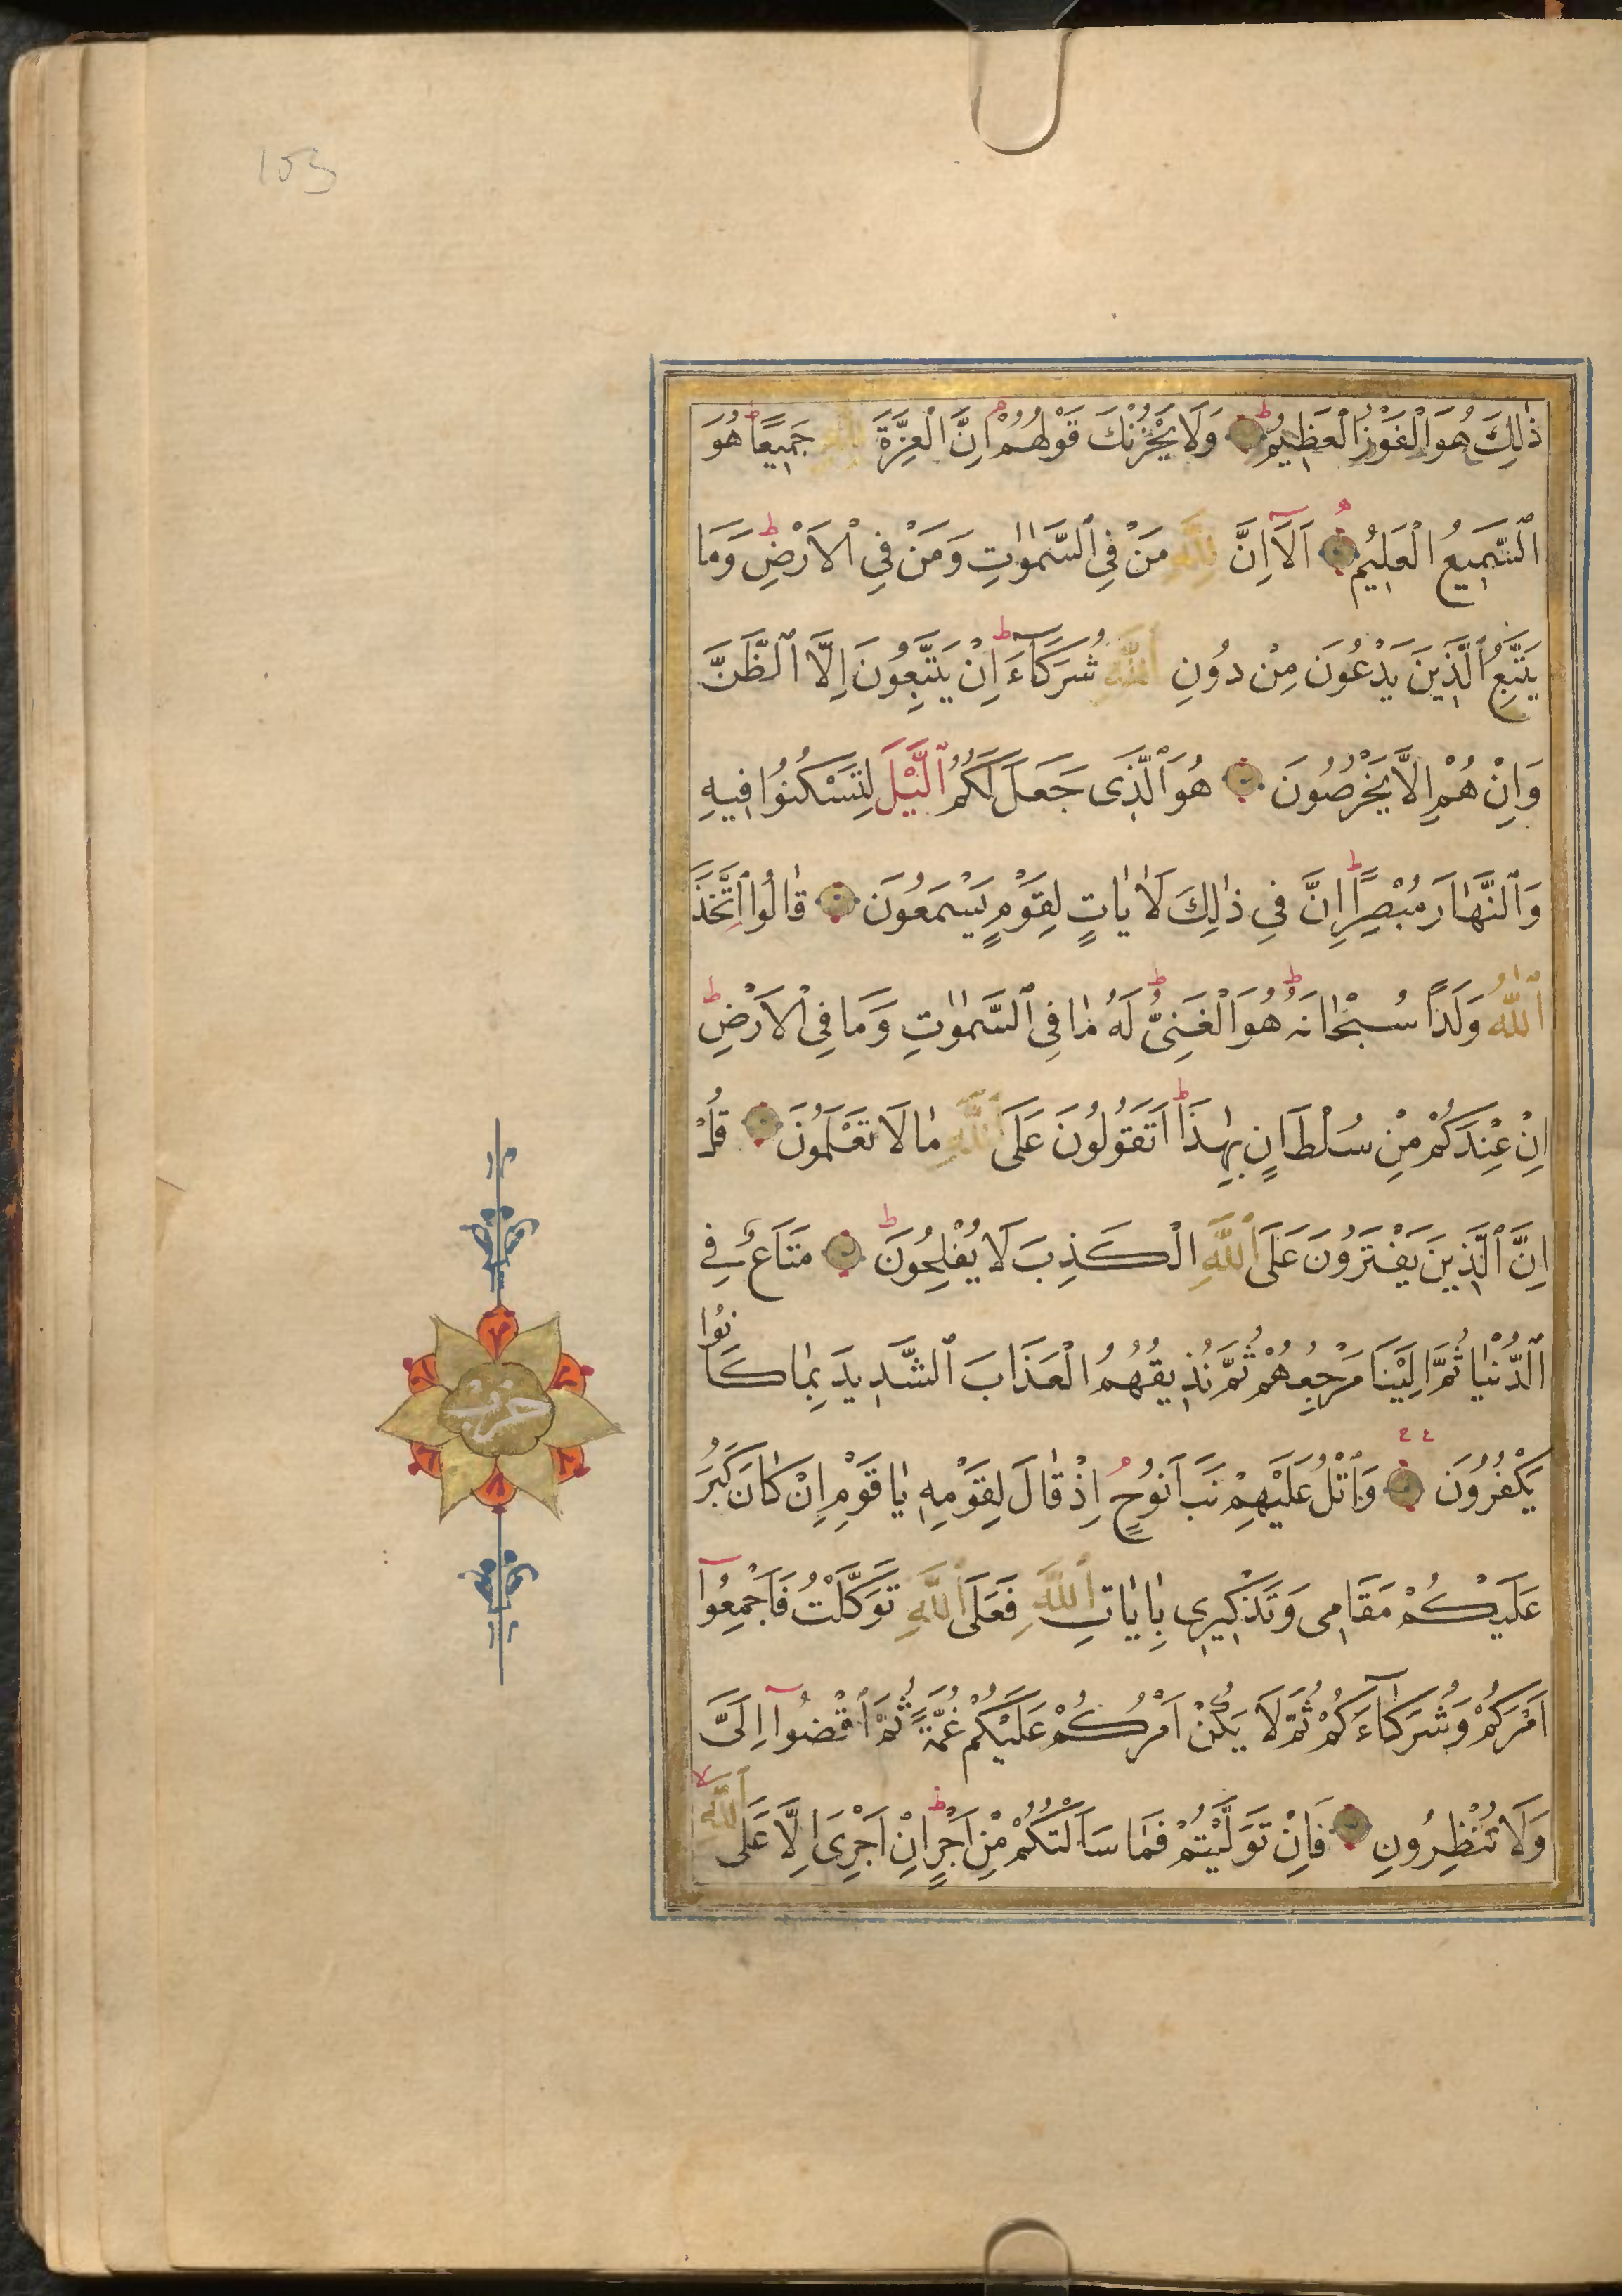 153
ذٰلِكَ هُوَ الْفَوْزُ الْعَظِيمُ وَلَا يَحْزُنْكَ قَوْلُهُمْ اِنَّ الْعِزَّةَ لِلّٰهِ جَمِيعًا هُوَ
ٱلسَّمِيعُ الْعَلِيمُ اَلَٓا اِنَّ لِلّٰهِ مَنْ فِي ٱلسَّمٰوٰاتِ وَمَنْ فِي الْاَرْضِ وَمَا
يَتَّبِعُ ٱلَّذِينَ يَدْعُونَ مِنْ دُونِ ٱللّٰهِ شُرَكَآءَ اِنْ يَتَّبِعُونَ اِلَّا ٱلظَّنَّ
وَاِنْ هُمْ اِلَّا يَخْرُصُونَ هُوَ ٱلَّذِى جَعَلَ لَكُمُ ٱلَّيْلَ لِتَسْكُنُوا فِيهِ
وَٱلنَّهٰارَ مُبْصِرًا اِنَّ فِي ذٰلِكَ لَاٰيٰاتٍ لِقَوْمٍ يَسْمَعُونَ قٰالُوا اتَّخَذَ
ٱللّٰهُ وَلَدًا سُبْحٰانَهُ هُوَ الْغَنِىُّ لَهُ مٰا فِي ٱلسَّمٰوٰاتِ وَمَا فِي الْاَرْضِ
اِنْ عِنْدَكُمْ مِنْ سُلْطَانٍ بِهٰذَا اَتَقُولُونَ عَلَى ٱللّٰهِ مٰا لَا تَعْلَمُونَ قُلْ
اِنَّ ٱلَّذِينَ يَفْتَرُونَ عَلَى ٱللّٰهِ الْكَذِبَ لَا يُفْلِحُونَ مَتَاعٌ فِي
ٱلدُّنْيٰا ثُمَّ اِلَيْنَا مَرْجِعُهُمْ ثُمَّ نُذِيقُهُمُ الْعَذَابَ ٱلشَّدِيدَ بِمٰا كَانُوا
يَكْفُرُونَ وَٱتْلُ عَلَيْهِمْ نَبَاَ نُوحٍ اِذْ قٰالَ لِقَوْمِهِ يٰا قَوْمِ اِنْ كٰانَ كَبُرَ
عَلَيْكُمْ مَقَامِى وَتَذْكِيرِى بِاٰيٰاتِ ٱللّٰهِ فَعَلَى ٱللّٰهِ تَوَكَّلْتُ فَاَجْمِعُوٓا
اَمْرَكُمْ وَشُرَكَآءَكُمْ ثُمَّ لَا يَكُنْ اَمْرُكُمْ عَلَيْكُمْ غُمَّةً ثُمَّ ٱقْضُوٓا اِلَىَّ
وَلَا تُنْظِرُونِ فَاِنْ تَوَلَّيْتُمْ فَمٰا سَاَلْتُكُمْ مِنْ اَجْرٍ اِنْ اَجْرِىَ اِلَّا عَلَى ٱللّٰهِ
حزب